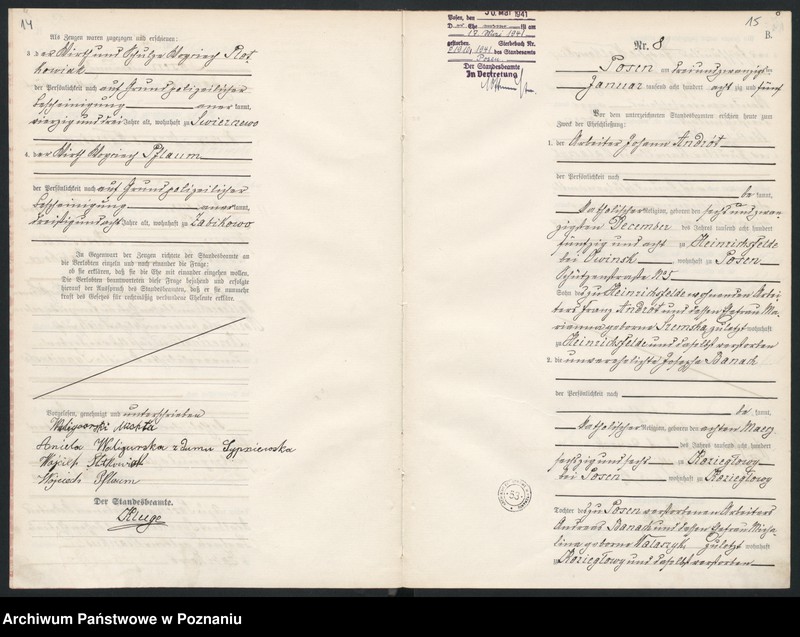 14
Als Zeugen waren zugezogen und erschienen:
3. der Wirth und Schulze Woyciech Plot
kowiak
der Persönlichkeit nach auf Grund polizeilicher
Bescheinigung anerkannt,
vierzig und drei Jahre alt, wohnhaft zu Swierzewo
4. der Wirth Woyciech Pflaum
der Persönlichkeit nach auf Grund polizeilicher
Bescheinigung anerkannt,
dreißig und acht Jahre alt, wohnhaft zu Zabikowo
In Gegenwart der Zeugen richtete der Standesbeamte an
die Verlobten einzeln und nach einander die Frage:
ob sie erklären, daß sie die Ehe mit einander eingehen wollen.
Die Verlobten beantworteten diese Frage bejahend und erfolgte
hierauf der Ausspruch des Standesbeamten, daß er sie nunmehr
kraft des Gesetzes für rechtmäßig verbundene Eheleute erkläre.
Vorgelesen, genehmigt und unterschrieben
Waligoorski
Aniela Waligurska z domu Sypniewska
Wojciech
Wojciech Pflaum
Der Standesbeamte.
Kluge
15
B.
Posen, den 30. Mai 1941
Ehe 19 am
17. März 1941
gestorben. Sterbebuch Nr.
1941 des Standesamts
Posen
Der Standesbeamte
In Vertretung
Nr. 8
Posen am drei und zwanzigsten
Januar tausend acht hundert achtzig und fünf
Vor dem unterzeichneten Standesbeamten erschienen heute zum
Zweck der Eheschließung:
1. der Arbeiter Johann Andrót
der Persönlichkeit nach
be kannt,
katholischer Religion, geboren den sechs und zwan
zigsten December des Jahres tausend acht hundert
fünfzig und acht zu Heinrichsfelde
bei Owinsk, wohnhaft zu Posen
Schützenstraße No 5
Sohn des zu Heinrichsfelde wohnenden Arbei
ters Franz Andrót und dessen Ehefrau Ma
rianna geborne Szemska, zuletzt wohnhaft
zu Heinrichsfelde und daselbst verstorben
2. die unverehelichte Josepha Banach
der Persönlichkeit nach
be kannt,
katholischer Religion, geboren den achten Maerz
des Jahres tausend acht hundert
sechszig und sechs zu Kozieglowy
bei Posen wohnhaft zu Kozieglowy
Tochter des zu Posen verstorbenen Arbeiters
Andreas Banach und dessen Ehefrau Micha
lina geborne zuletzt wohnhaft
zu Kozieglowy und daselbst verstorben
53
Archiwum Państwowe w Poznaniu